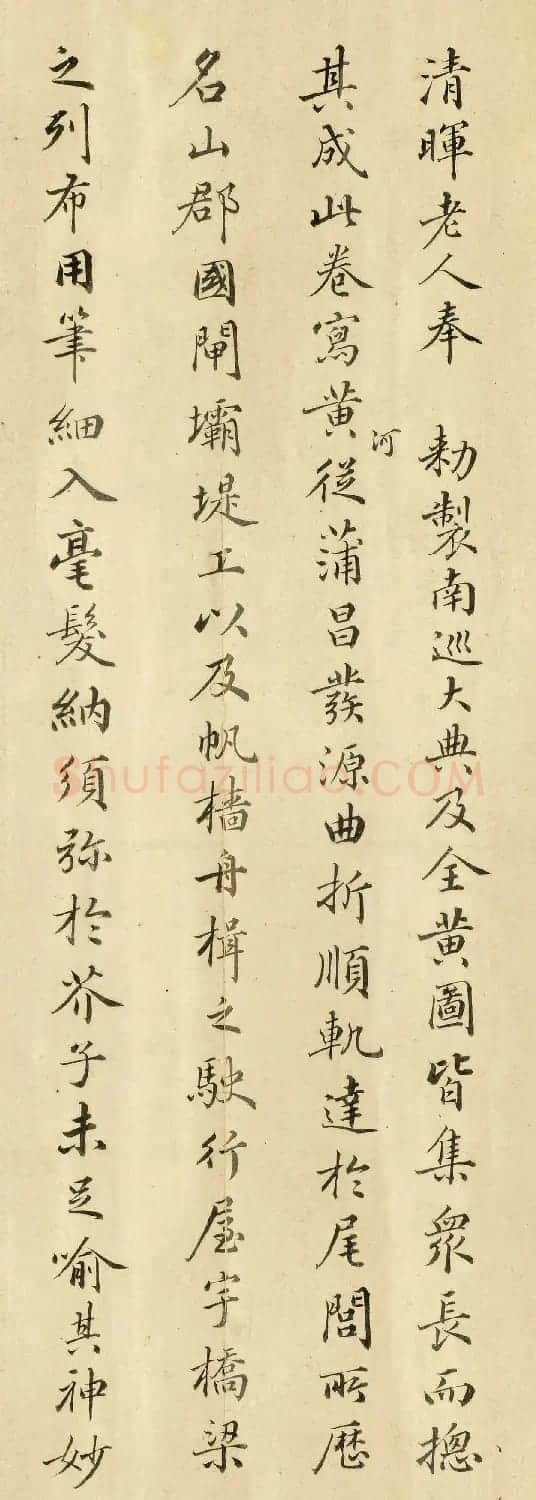 清暉老人奉　勅製南巡大典及全黄圖皆集衆長而揔
其成此卷寫黄河從蒲昌發源曲折順軌達於尾閭所歷
名山郡國閘壩堤工以及帆檣舟楫之駛行屋宇橋梁
之列布用筆細入毫髮納須弥於芥子未足喻其神妙
Shufaziliao.COM